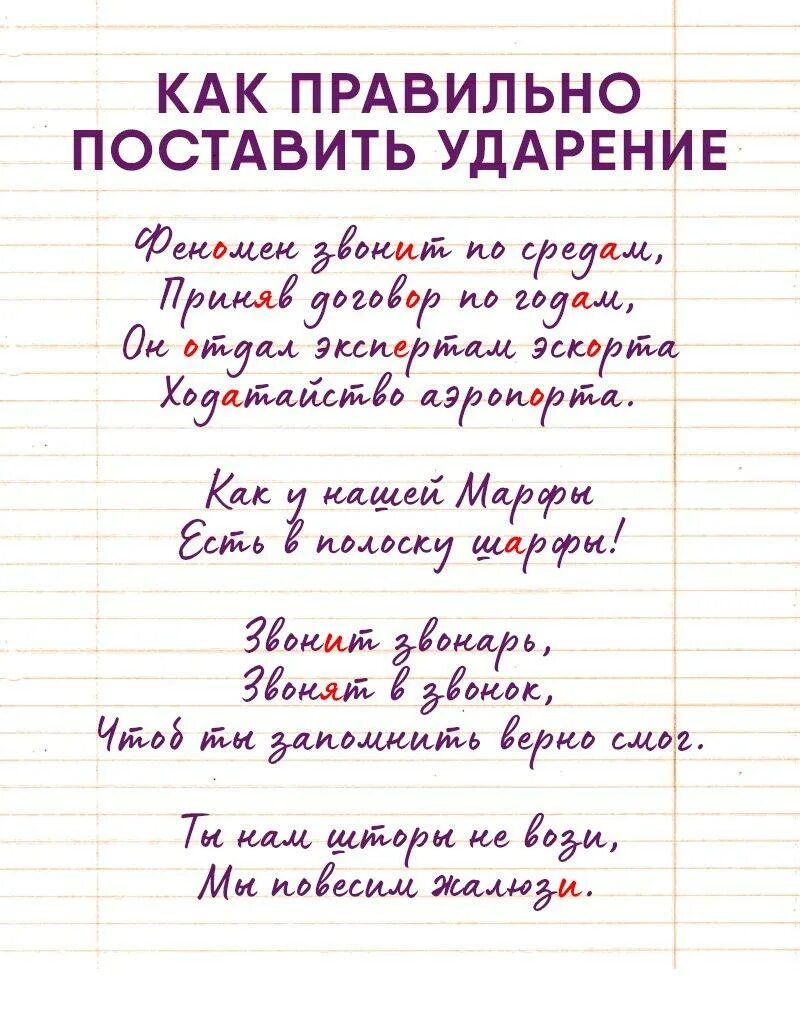 КАК ПРАВИЛЬНО
ПОСТАВИТЬ УДАРЕНИЕ
Феномен звонит по средам,
Приняв договор по годам,
Он отдал экспертам эскорта
Ходатайство аэропорта.
Как у нашей Марфы
Есть в полоску шарфы!
Звонит звонарь,
Звонят в звонок,
Чтоб ты запомнить верно смог.
Ты нам шторы не вози,
Мы повесим жалюзи.